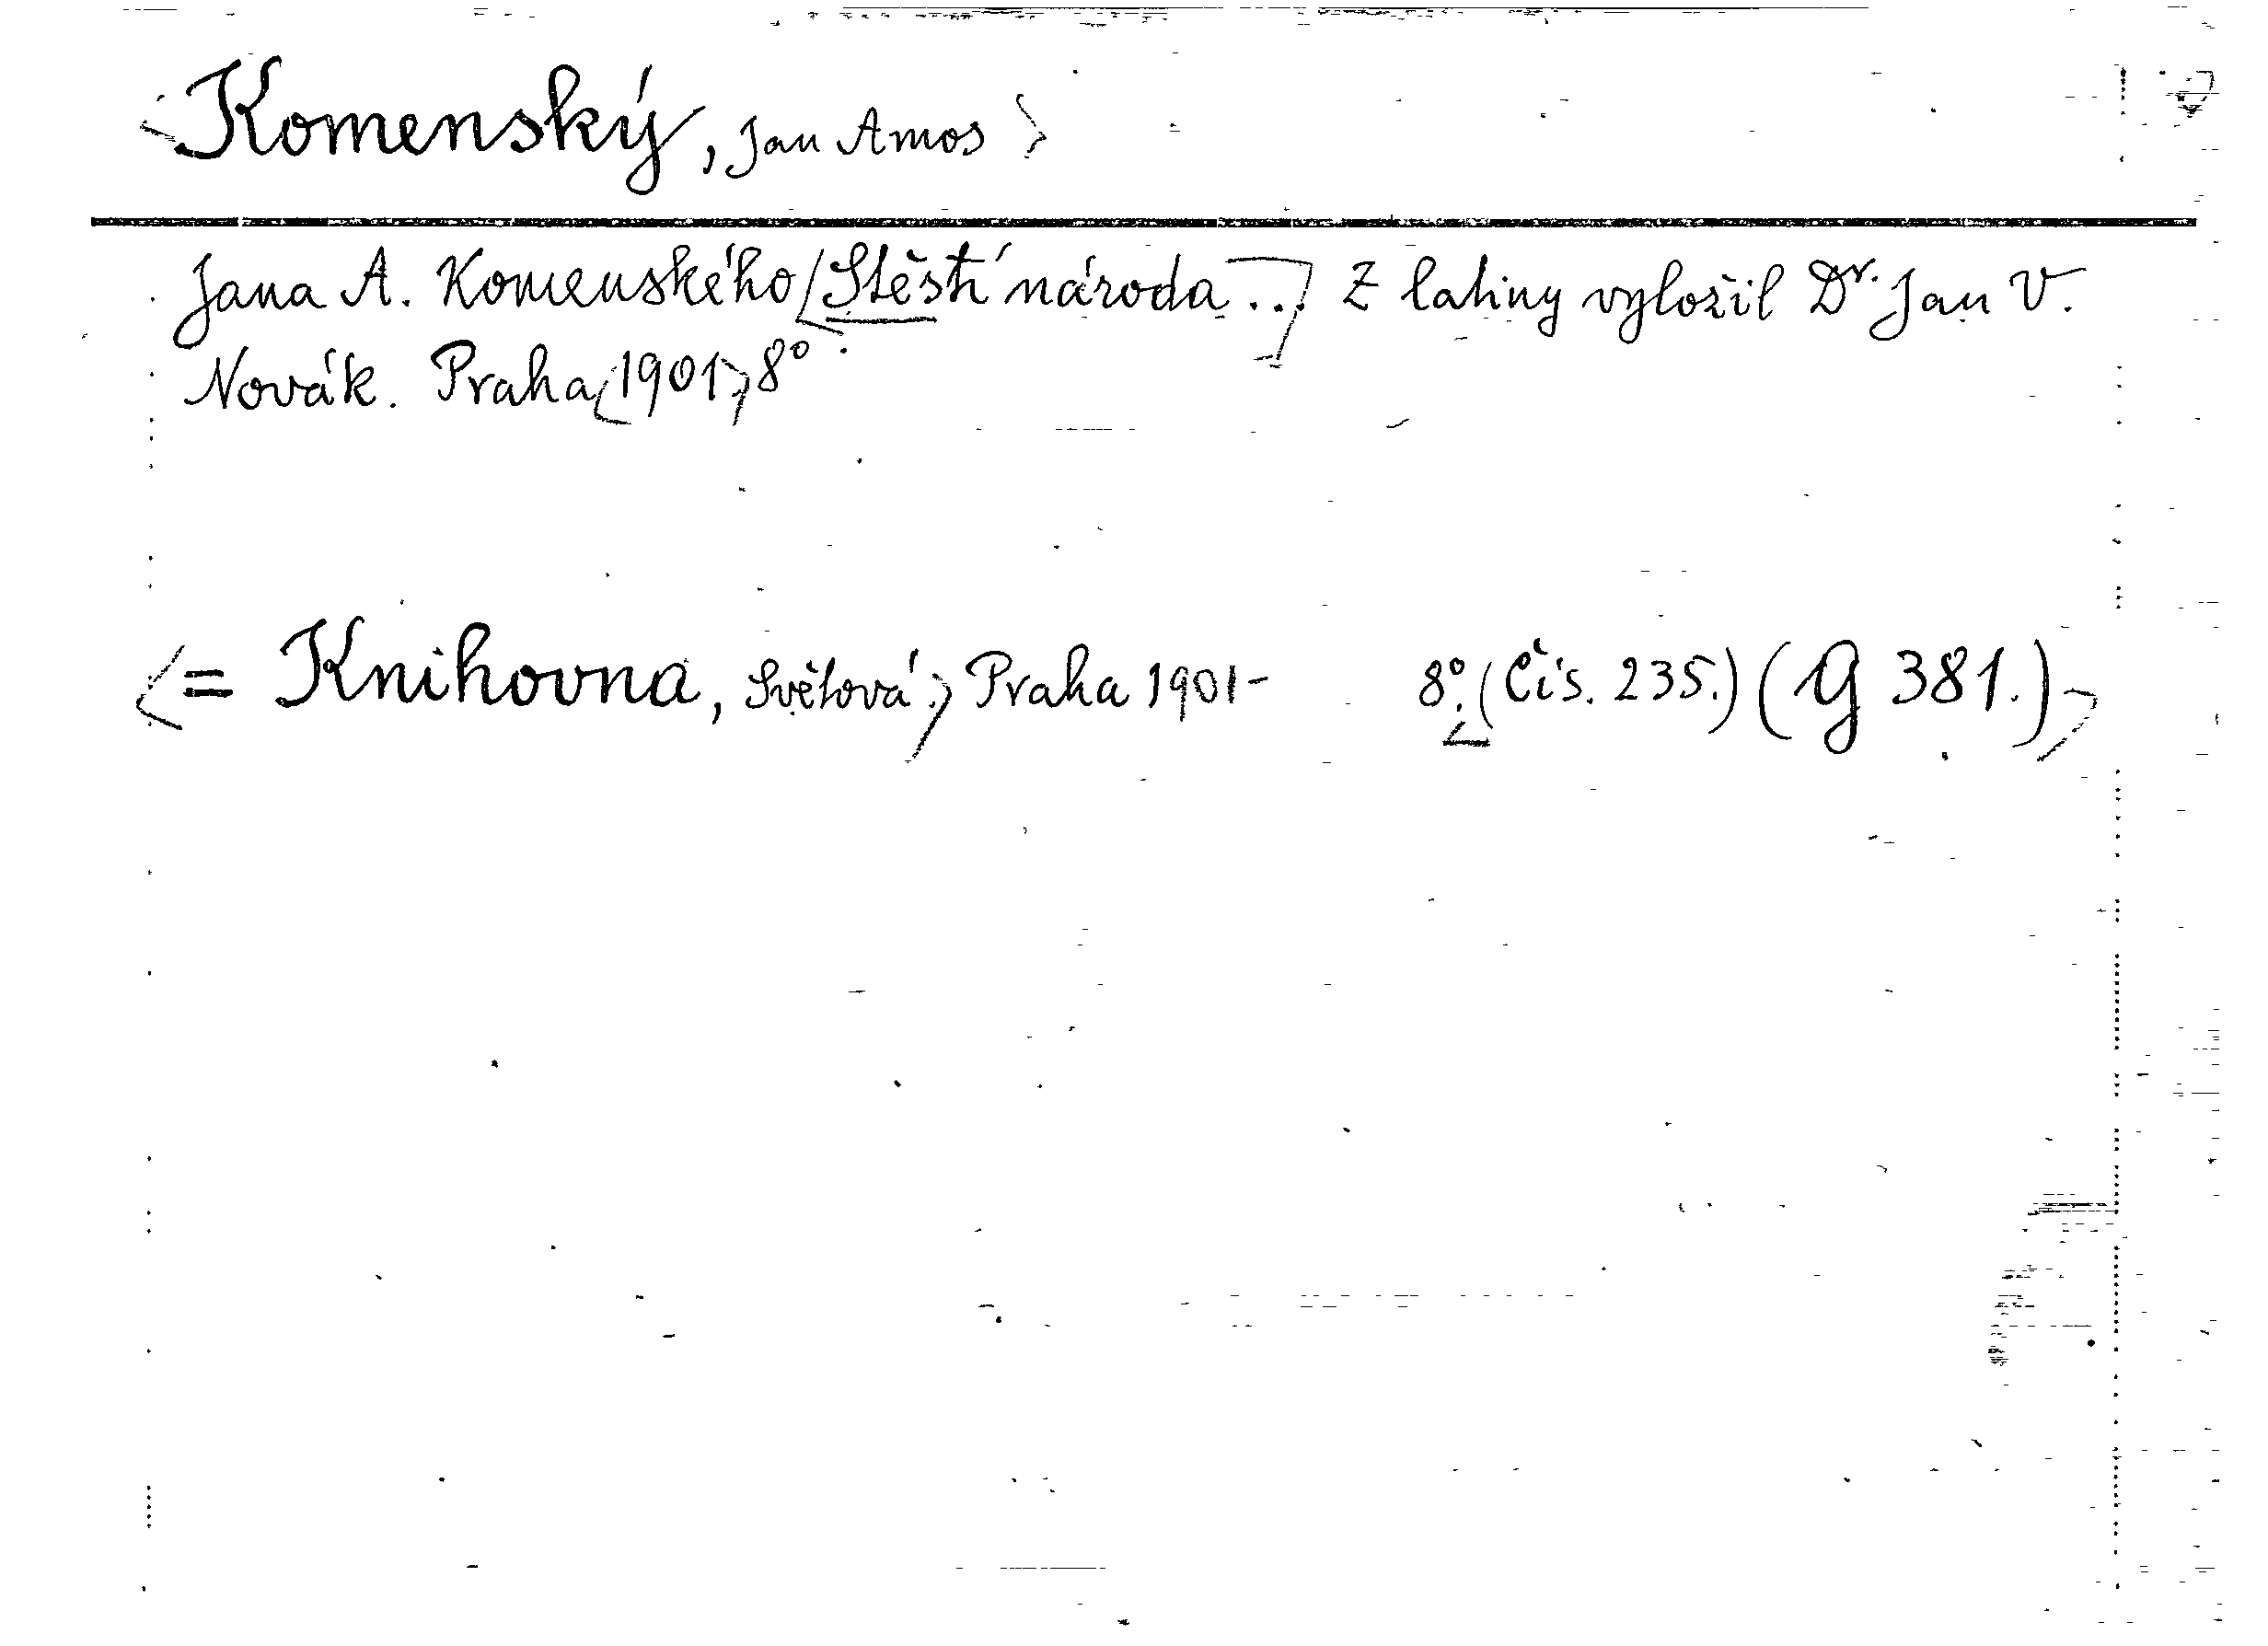 <Komenský, Jan Amos>
Jana A. Komenského <Stěstí národa ...> Z latiny vyložil Dr. Jan V.
Novák. Praha <1901> 8°
<= Knihovna, Světová.> Praha 1901- 8°. <(Čís. 235.) (G 381.)>